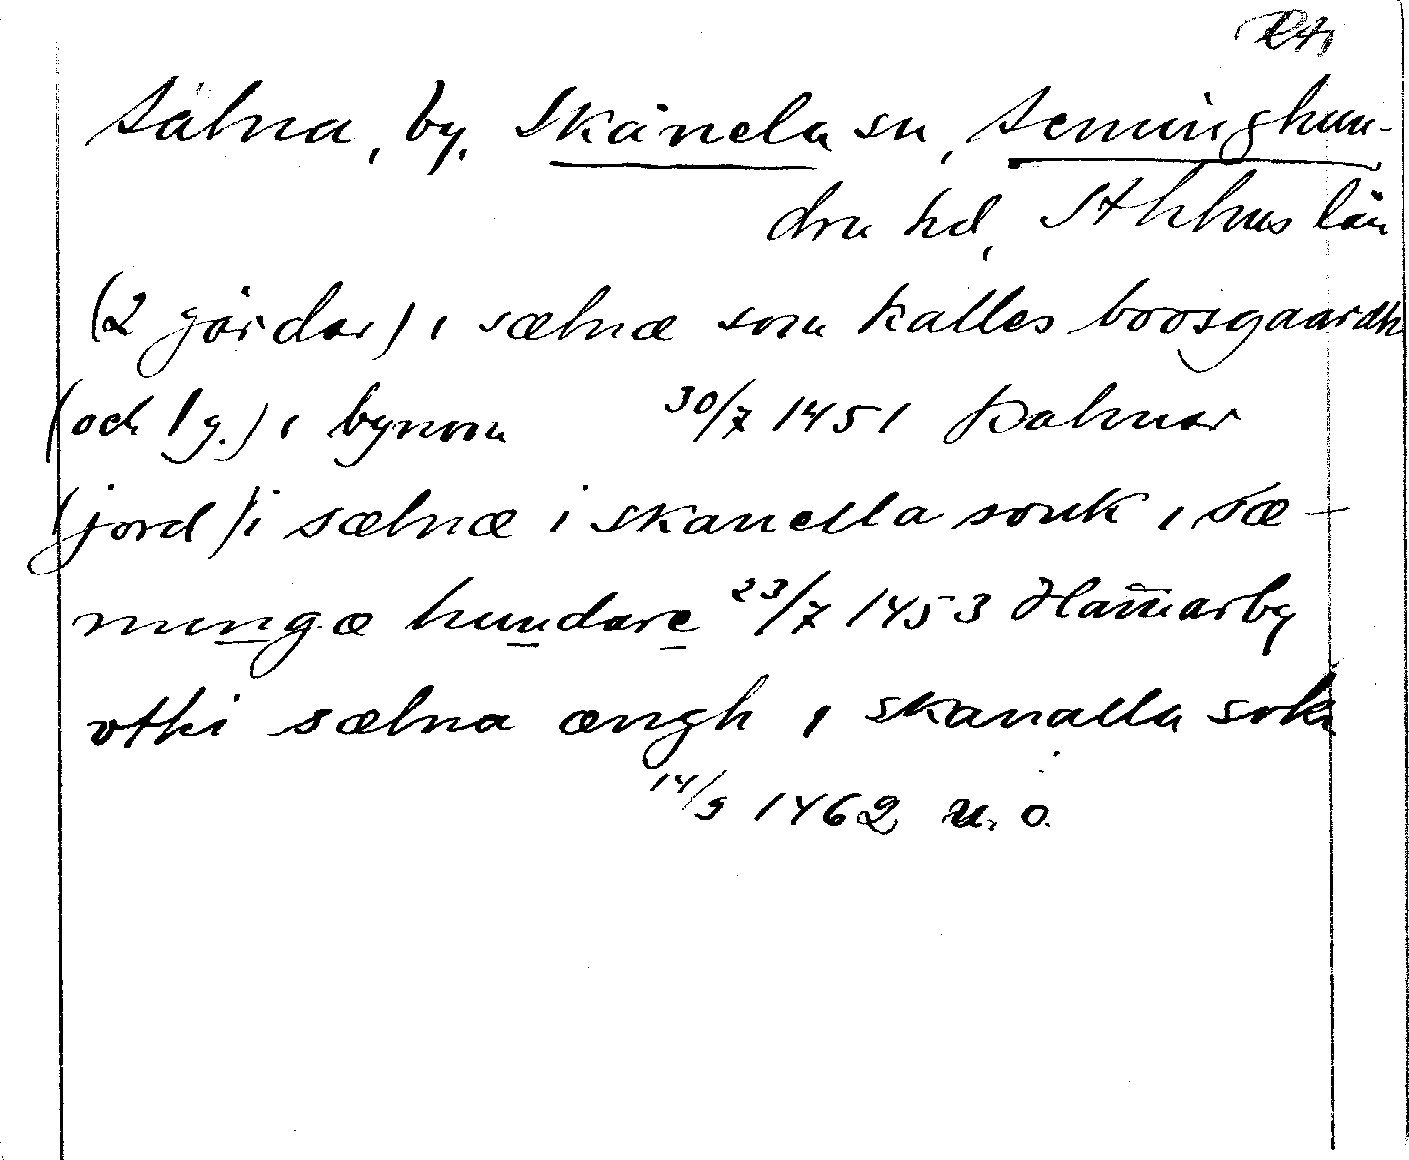 RA,
Sälna, by, Skånela sn, Seminghun-
dra hd, Sthlms län
(2 gårdar) i sælnæ som kalles boosgaardh
(och 1 g.) i bynom 30/7 1451 Kalmar
(jord) i sælnæ i skanella sonk i sæ-
mingæ hundare 23/7 1453 Ham̄arby
vthi sælna ængh i skanalla sokn
14/9 1462 u. o.